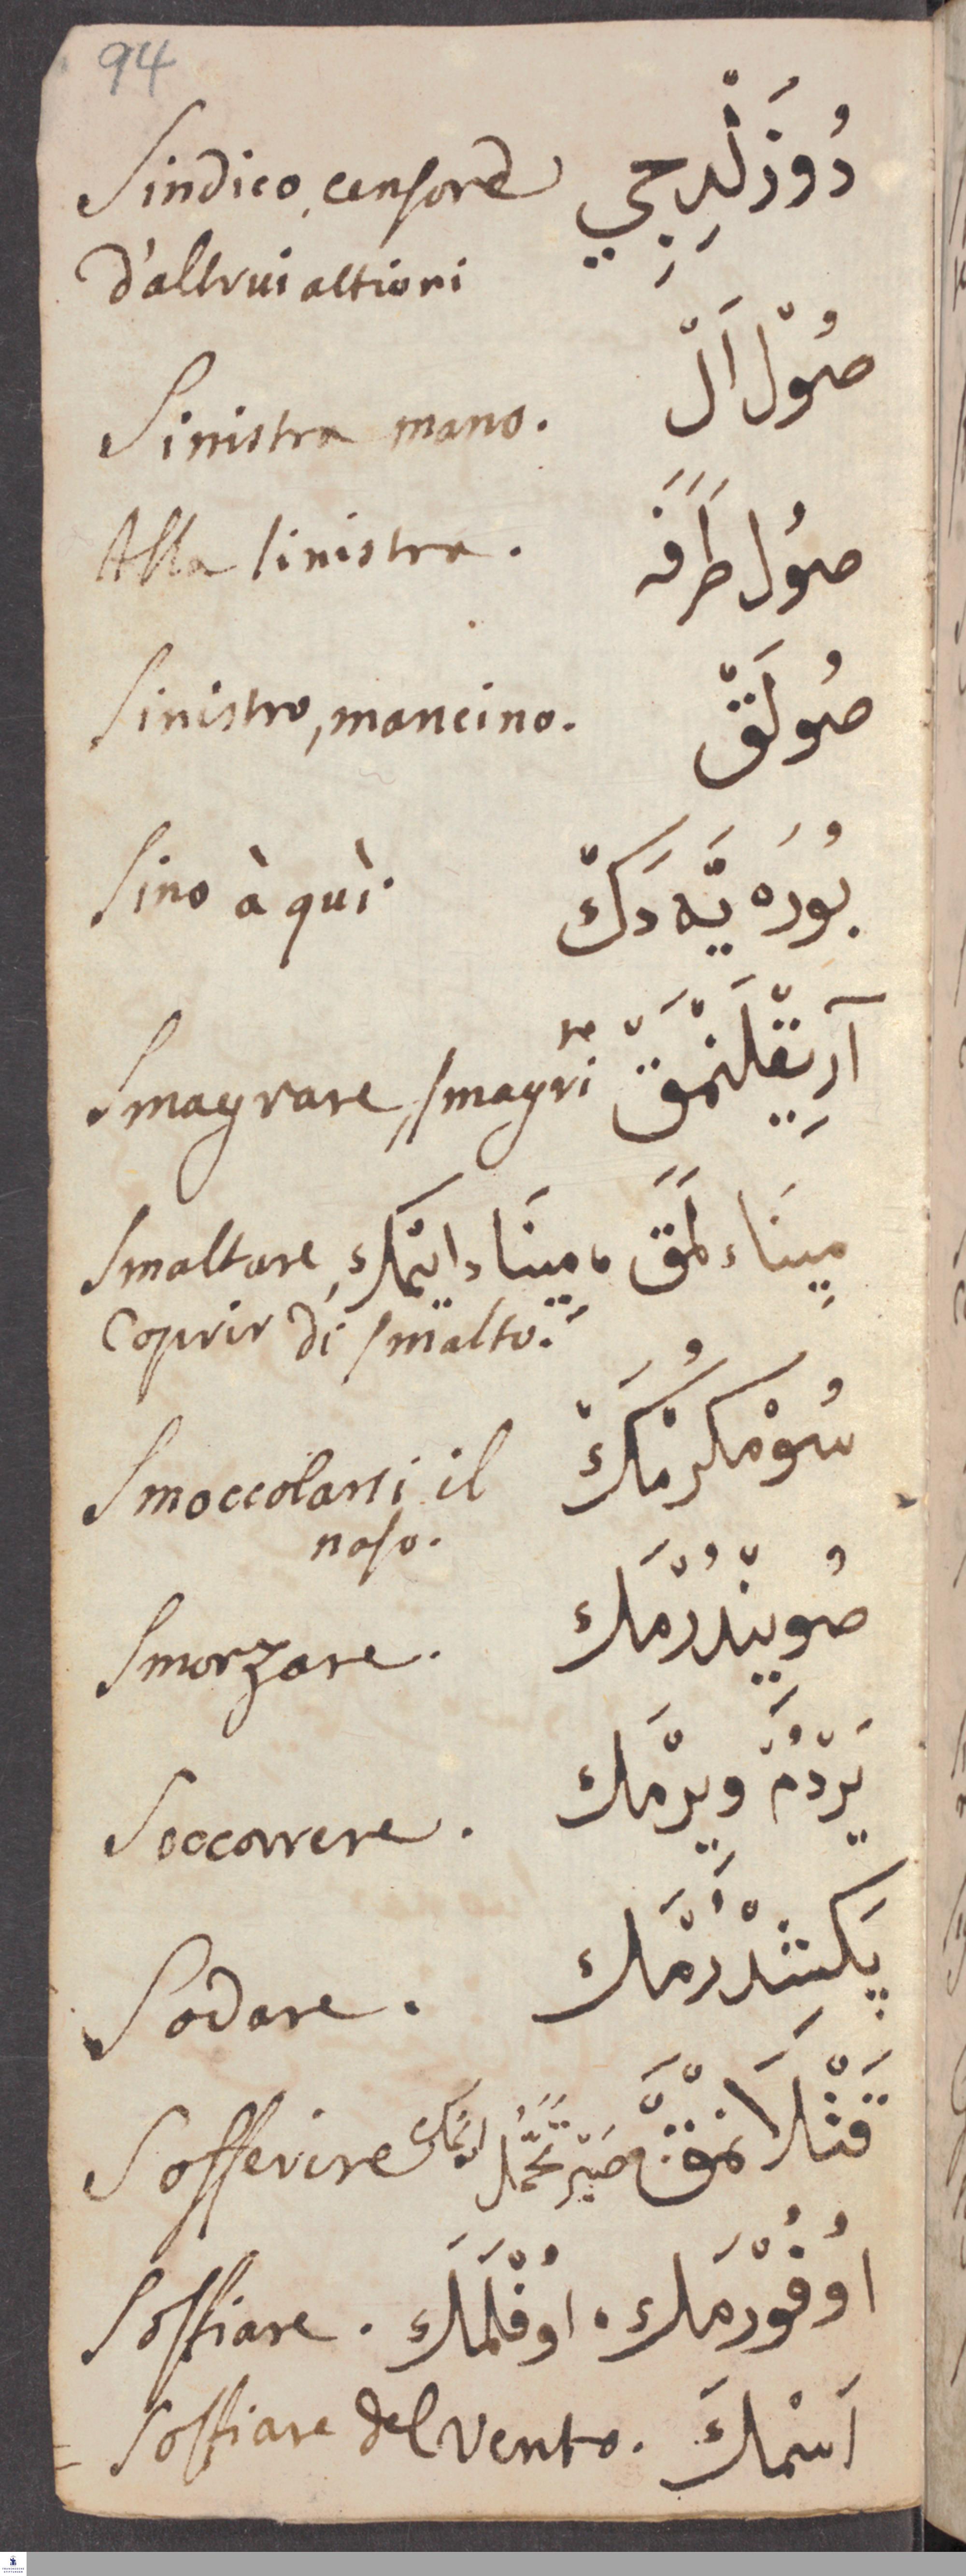 94
Sindico, censore دُوزَلْدِجِي
d'altrui attioni
Sinistra mano. صُوْل اَلْ
Alla sinistra. صوُل طَرَفَه
Sinistro, mancino. صُولَقْ
Sino à quì. بُورَه يَّه دَكْ
Smagrare, smagrire آرِيقْلَنْمَقْ
Smaltare, مِينَاء لَمَق، مِينَاء ايتْمَك
coprir di smalto.
Smoccolarsi il سُوْمكُرْمَكْ
naso.
Smorzare. صُويِنْدُرْمَك
Soccorrere. يَرْدُمْ ويرْمَك
Sodare. پَكِشْدُرْمَك
Sofferire قَتْلَانْمَقْ صَبْر تَحَمُّل ايتمَك
Soffiare. اوُفُوْرْمَك، اوُفْلَمَك
Soffiare del vento. اَسْمَك